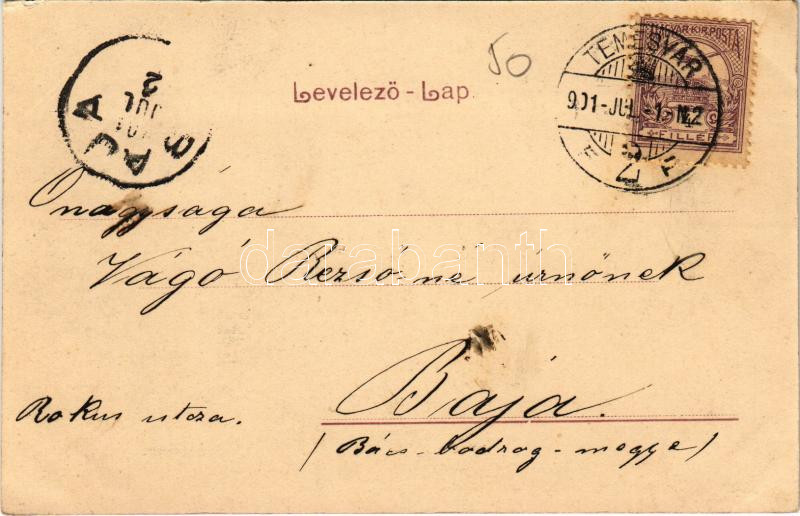 50
MAGYAR·KIR·POSTA
FILLÉR
TEMESVÁR
901-JUL.-1. N2
BAJA
901
JUL
2
Levelező-Lap.
Őnagysága
Vágó Rezső né úrnőnek
Baja.
Rokus utcza.
(Bács-bodrog-megye)
darabanth